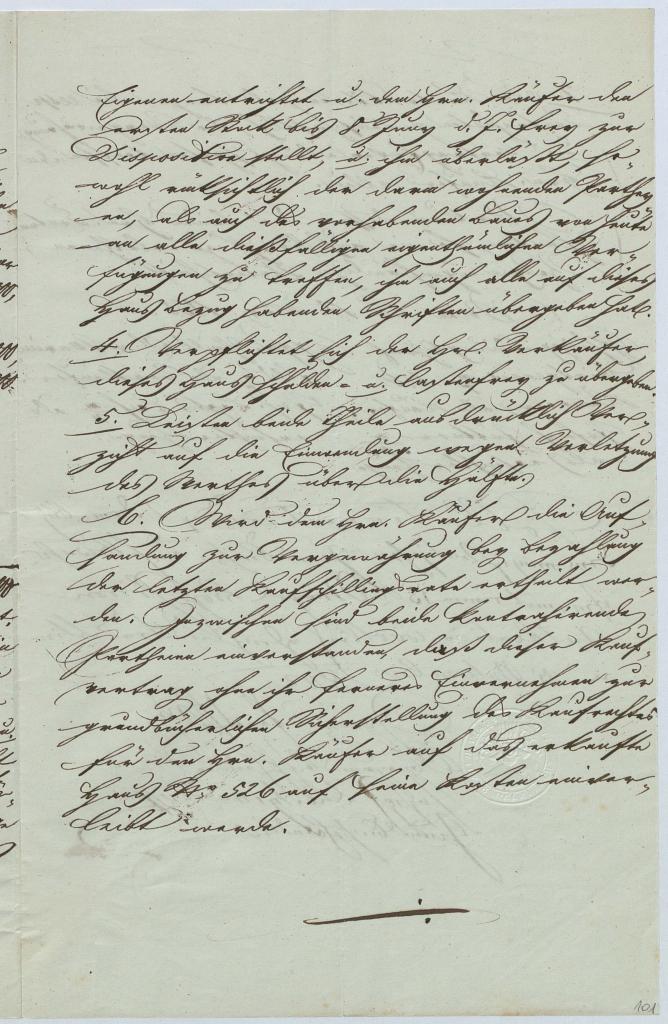 Eigenen entrichtet u. dem Hrn. Käufer den
ersten Stock bis 8. Juny d. J. frey zur
Disposition stellt, u. ihm überläßt, so-
wohl rücksichtlich der darin wohnenden Parthey-
en, als auch des vorhabenden Baues von heute
an alle dießfälligen eigenthümlichen Ver-
fügungen zu treffen, ihm auch alle auf dieses
Haus Bezug habenden Schriften übergeben hat.
4. Verpflichtet sich der Hr. Verkäufer
dieses Haus schulden- u. lastenfrey zu übergeben.
5. Leisten beide Theile ausdrücklich Ver-
zicht auf die Einwendung wegen Verletzung
des Werthes über die Hälfte.
6. Wird dem Hrn. Käufer die Auf-
sandung zur Vergewährung bey Bezahlung
der letzten Kaufschillingsrate ertheilt wer-
den. Inzwischen sind beide kontrahirende
Partheien einverstanden, daß dieser Kauf-
vertrag ohne ihr ferneres Einvernehmen zur
grundbücherlichen Sicherstellung des Kaufrechtes
für den Hrn. Käufer auf das erkaufte
Haus No 526 auf seine Kosten einver-
leibt werde.
101